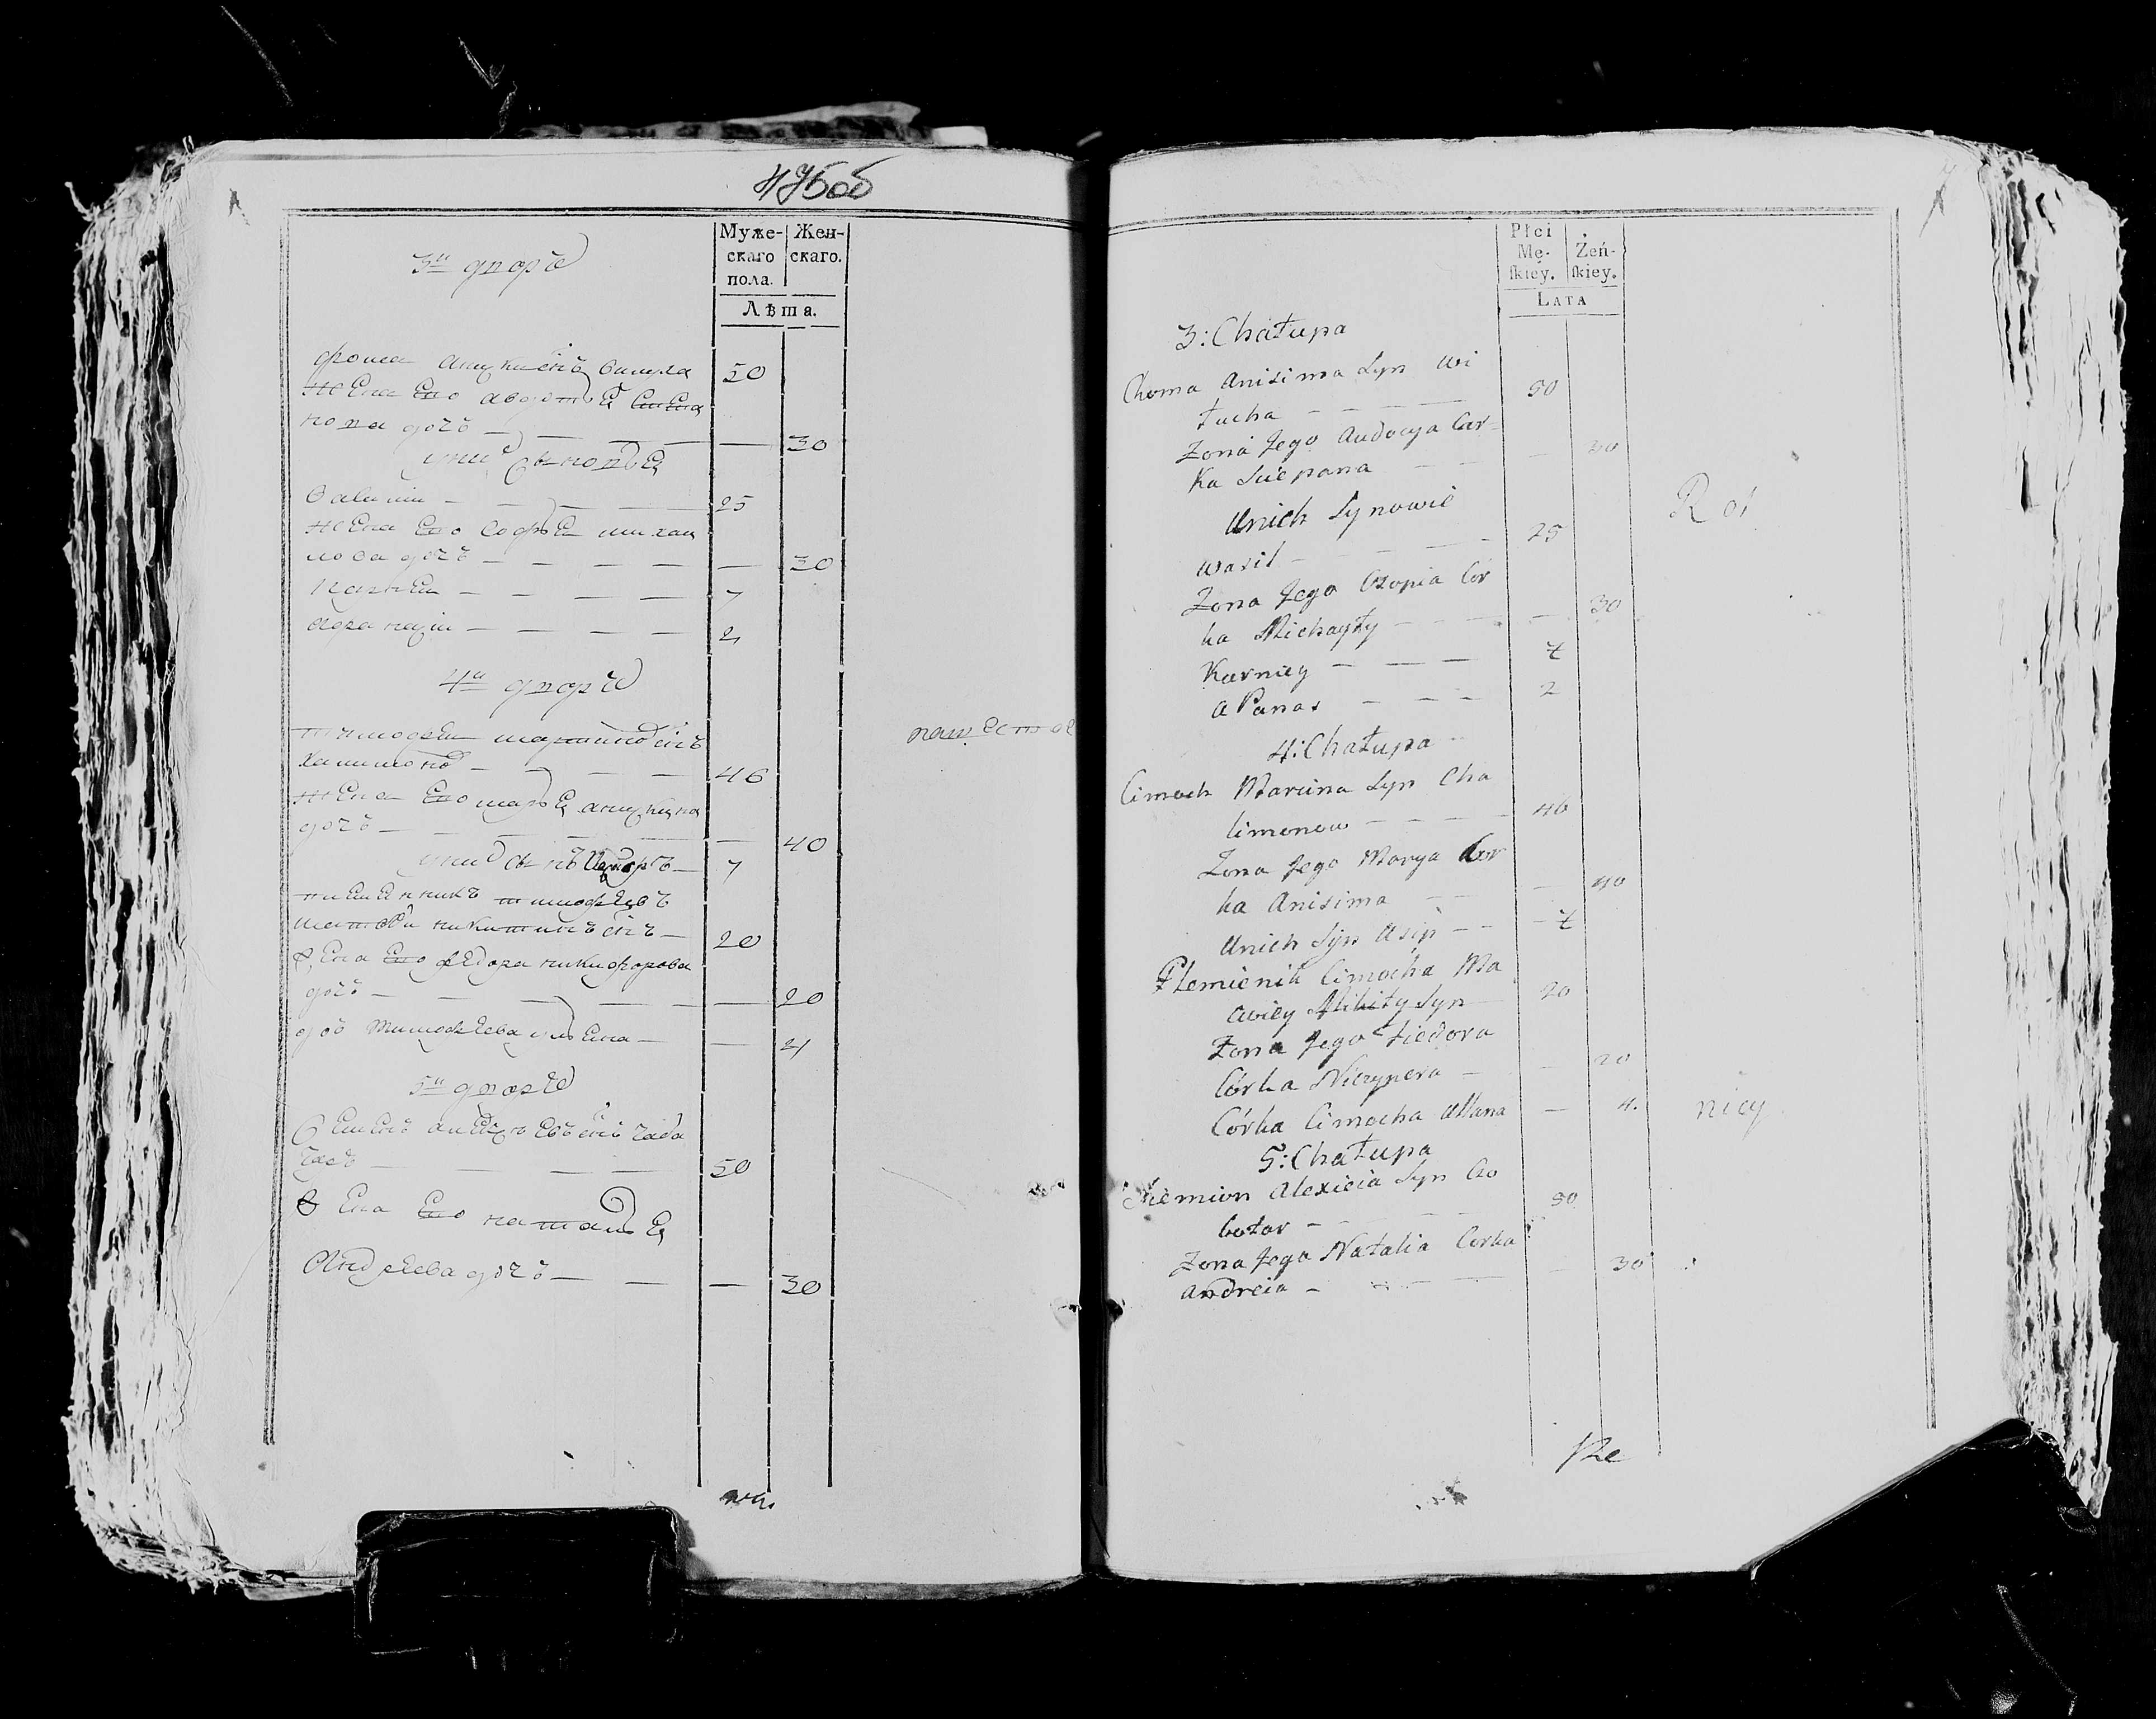 475об
Муже-
скаго
пола.
Жен-
скаго.
Лѣта.
3й дворъ
Фома Анисимовъ снъ Вилуха 50
Жена Его Авдотья Степа
нова дочь — — — — 30
у них сыновья
Василій — — — 25
Жена Его Софья Михаи
лова дочь — — — — — 30
Карней — — — — 7
Афанасій — — — — 2
4й дворъ
Тимофей Мартиновъ снъ
Халимоновъ — — — 46
Жена Его Марья Анисимова
дочь — — — — — 40
у них сынъ Осипъ — 7
племенникъ Тимофеевъ
Матвѣй Никитинъ снъ — 20
Жена Его Федора Никифорова
дочь — — — — — 20
дочь Тимофеева Ульяна — — 4
5й дворъ
Семенъ Алексѣевъ снъ Чабо
таръ — — — — 50
Жена Его Наталья
Андреева дочь — — — 30
Płci
Mę-
skiey.
Żeń-
skiey.
LATA
3: Chałupa
Choma Anisima Syn Wi
łucha — — — — 50
Zona Jego Audocya Cor-
ka Sciepana — — — 30
Unich Synowie
Wasil — — — — 25
Zona Jego Czopia Cor
ka Michayły — — — — 30
Karniey — — — 7
aPanas — — — 2
4: Chałupa
Cimoch Marcina Syn Cha
limonow — — — — 46
Zona Jego Marya Cor
ka Anisima — — — 40
Unich Syn Asip — — 7
Plemienik Cimocha Ma
ciwiey Mikity Syn 20
Zona Jego Fiedora
Córka Niczypera — — 20
Córka Cimocha Ullana — 4.
5: Chałupa
Siemion Alexieia Syn Czo
botar — — — 50
Zona Jego Natalia Corka
Andreia — — — — 30
Rol
nicy